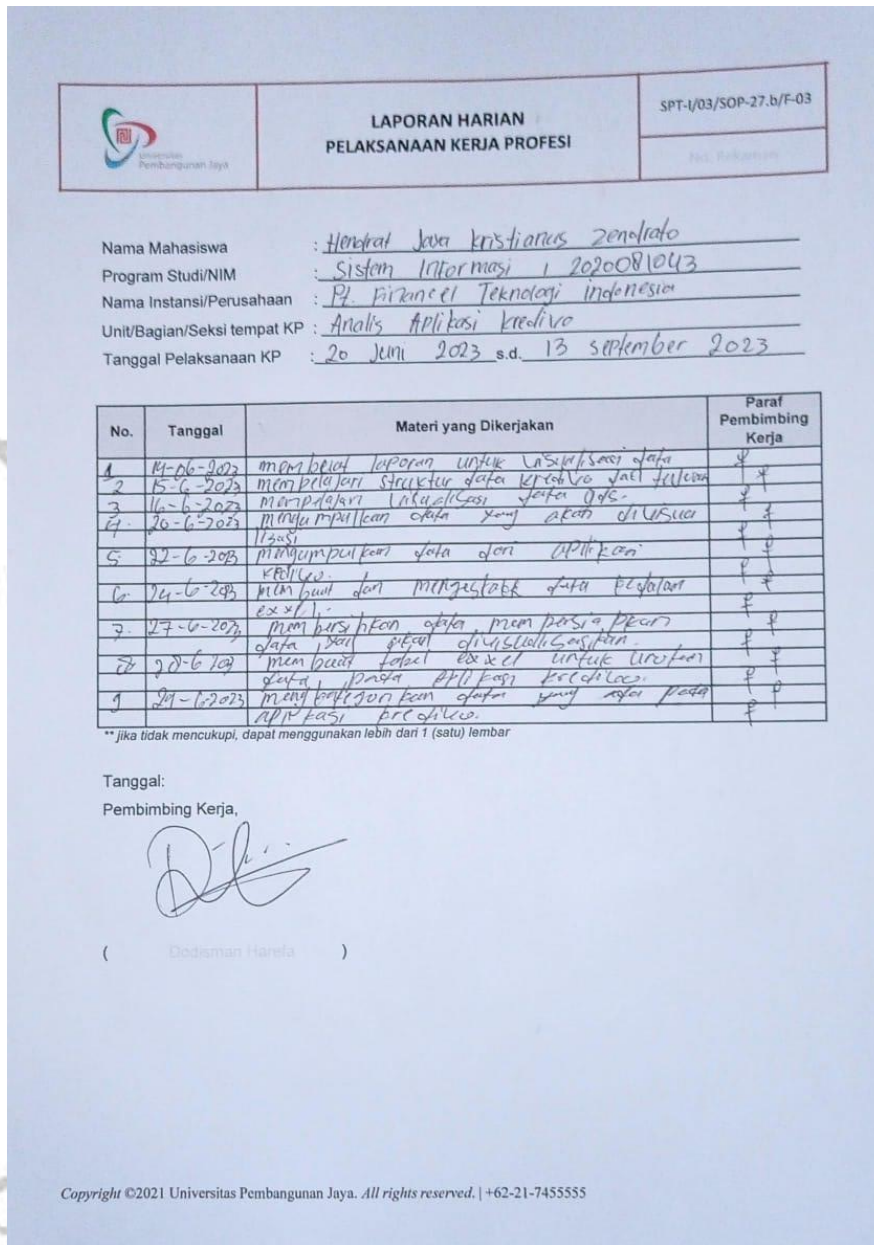 Universitas
Pembangunan Jaya
LAPORAN HARIAN
PELAKSANAAN KERJA PROFESI
SPT-I/03/SOP-27.b/F-03
No. Rekaman
Nama Mahasiswa : Hendrat Jaya kristianus Zendrato
Program Studi/NIM : Sistem Informasi / 2020081043
Nama Instansi/Perusahaan : Pt. Finaccel Teknologi indonesia
Unit/Bagian/Seksi tempat KP : Analis Aplikasi kredivo
Tanggal Pelaksanaan KP : 20 Juni 2023 s.d. 13 september 2023
No. Tanggal Materi yang Dikerjakan Paraf Pembimbing Kerja
1 14-06-2023 laporan untuk data
2 15-6-2023 mempelajari struktur data kredivo
3 16-6-2023 mempelajari data
4. 20-6-2023 mengumpulkan data yang akan divisua
lisasi
5. 22-6-2023 mengumpulkan data dari aplikasi
kredivo.
6. 24-6-2023 membuat dan data kedalam
exxel.
7. 27-6-2023 membersihkan data, mempersiapkan
data, akan divisualisasikan.
8 28-6 membuat tabel exxel untuk
data, pada Aplikasi
9 29-6-2023 data yang ada pada
aplikasi
** jika tidak mencukupi, dapat menggunakan lebih dari 1 (satu) lembar
Tanggal:
Pembimbing Kerja,
( Dodisman Harefa )
Copyright ©2021 Universitas Pembangunan Jaya. All rights reserved. | +62-21-7455555